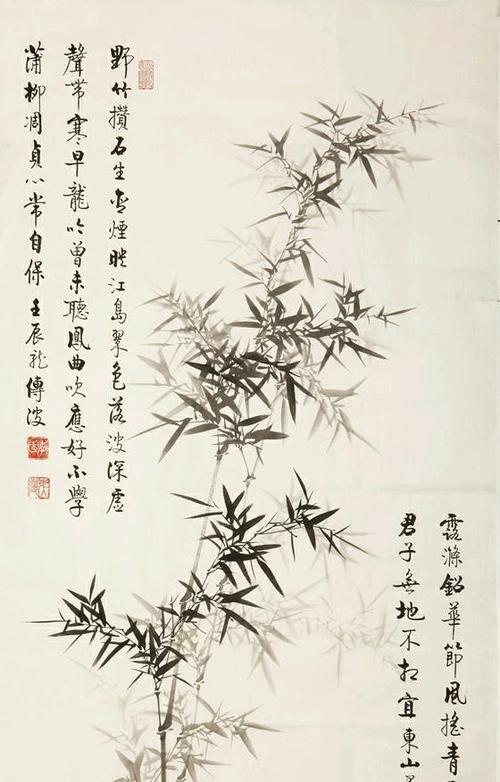 露滌鉛華節風搖青
君子無地不相宜東山
野竹攢石生含煙暎江島翠色落波深虛
聲帶寒早龍吟曾未聽鳳曲吹應好不學
蒲柳凋貞心常自保壬辰傳波